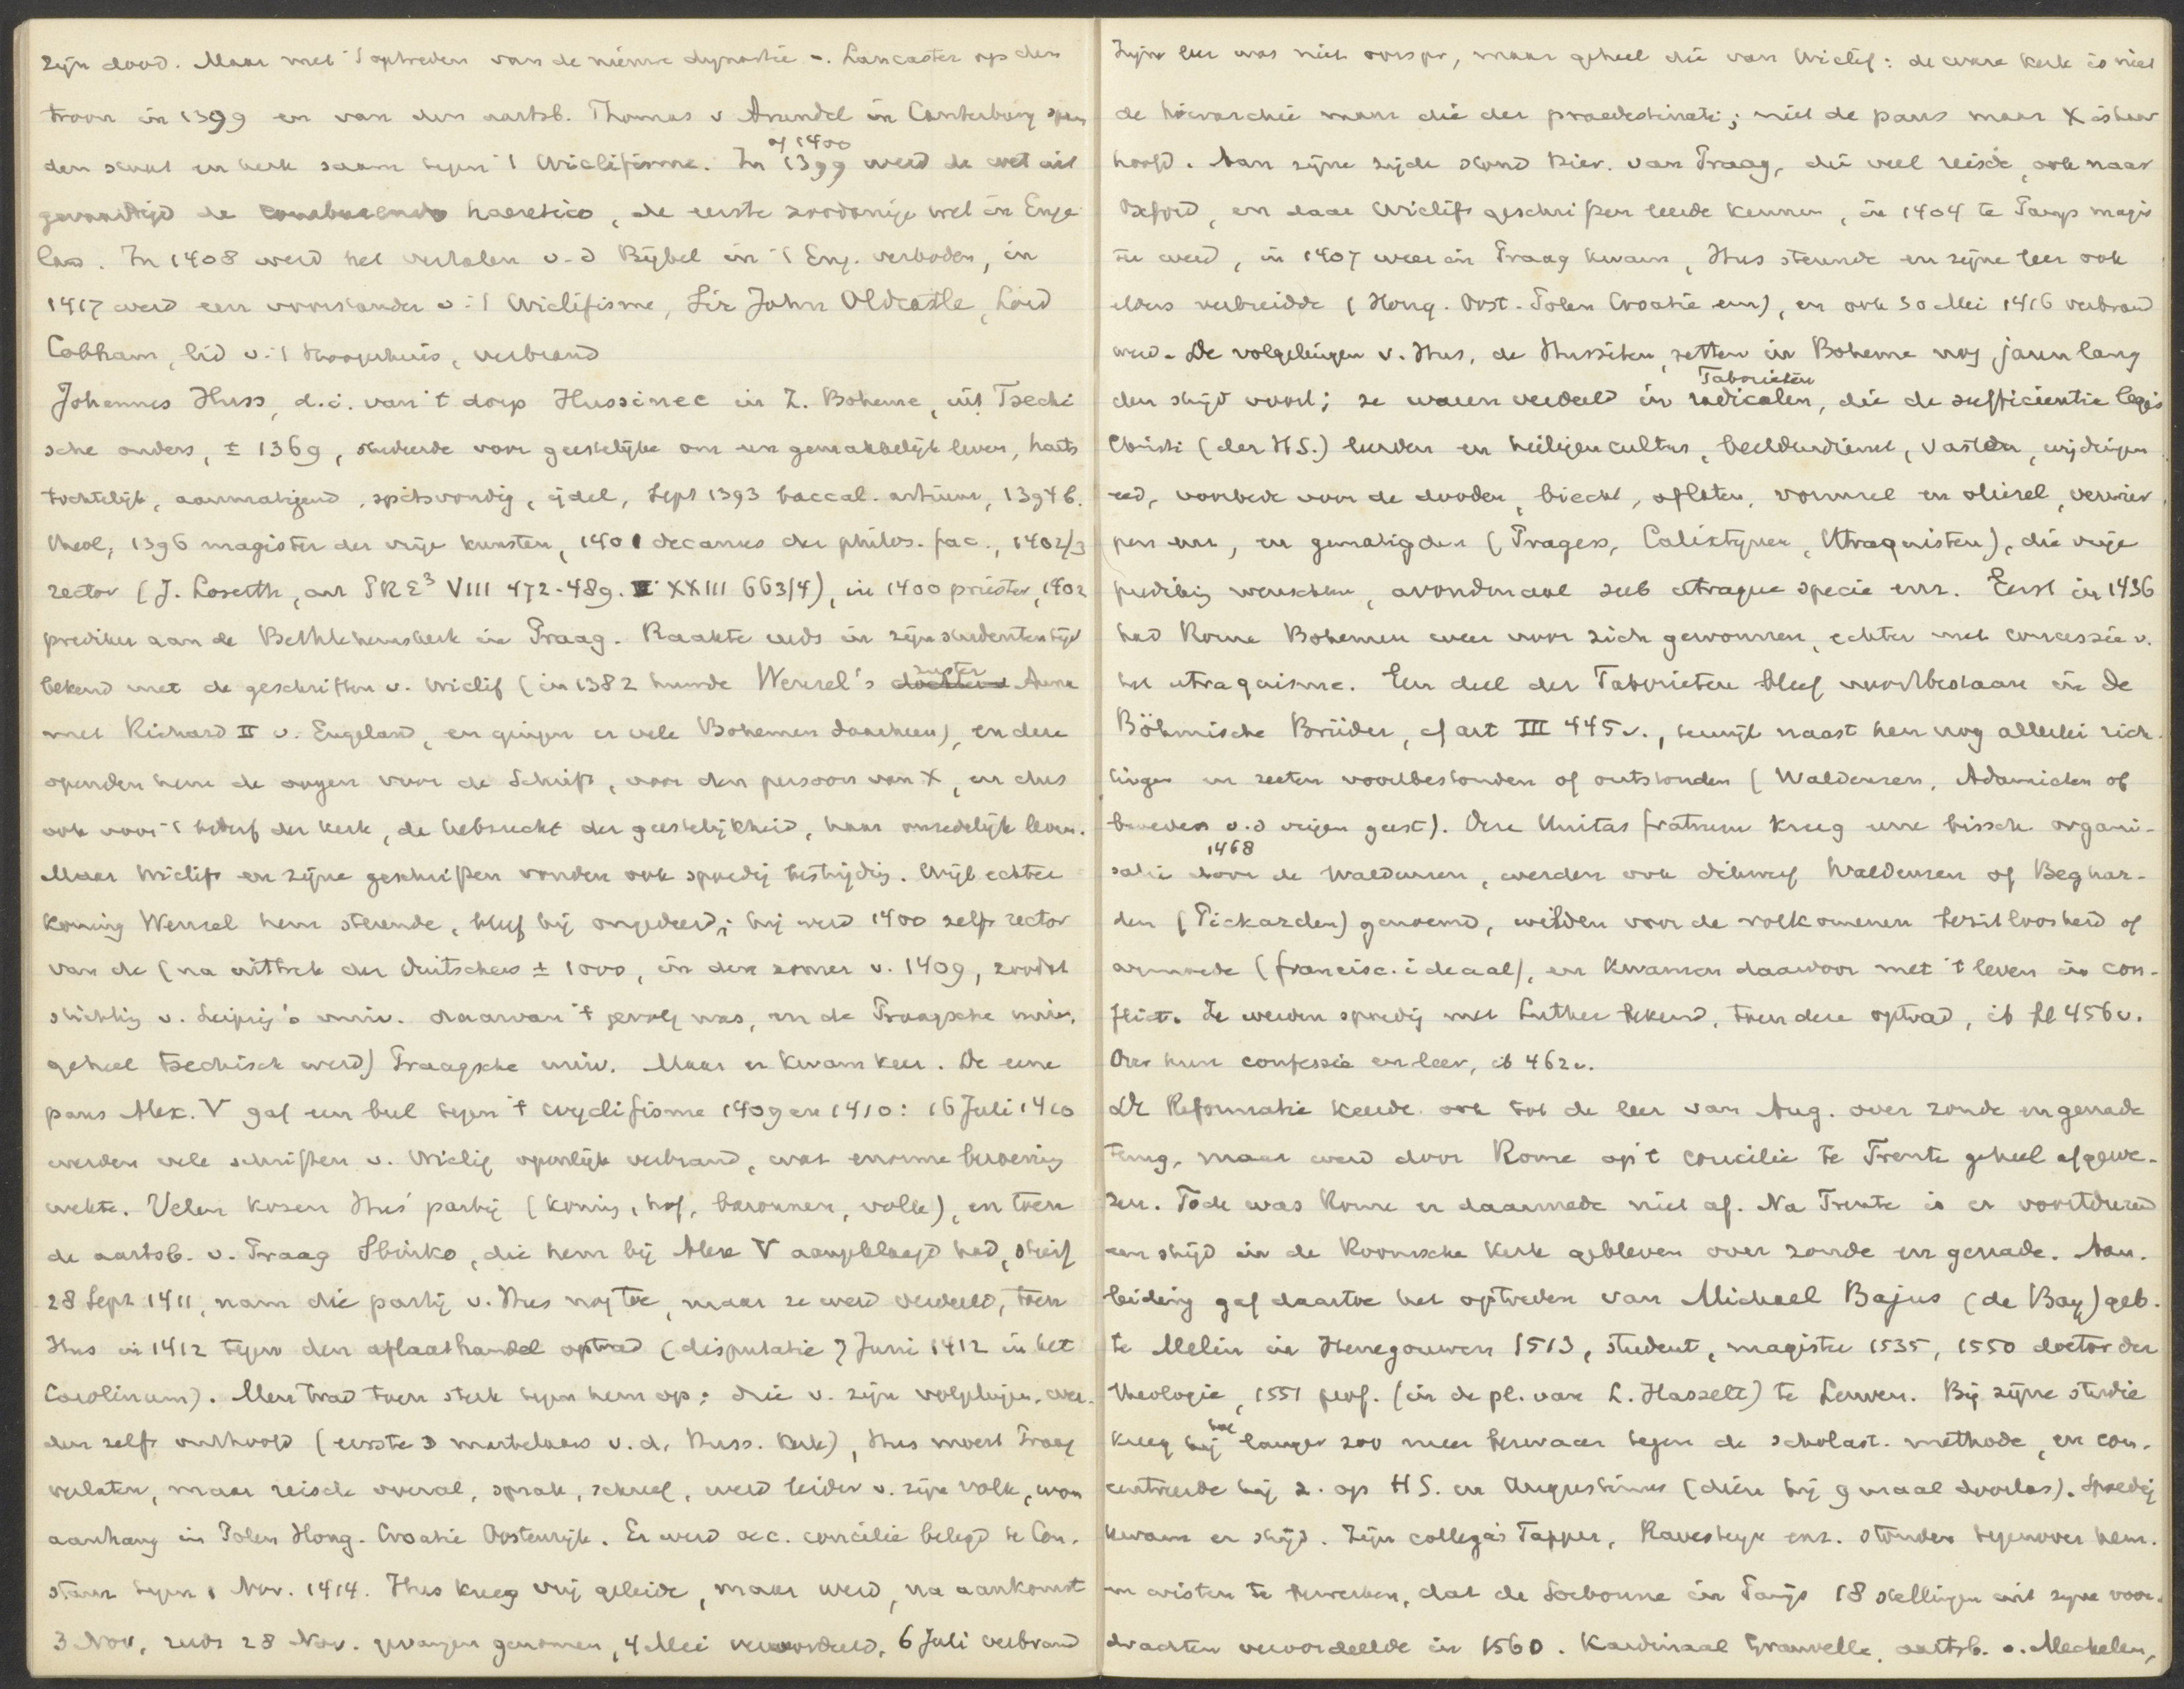 zijn dood. Maar met 't optreden van de nieuwe dynastie v. Lancaster op den
troon in 1399 en van den aartsb. Thomas v Arundel in Canterbury span
den staat en kerk saam tegen 't Wiclifisme. In 1399 of 1400 werd de wet uit
gevaardigd de comburendo haeretico, de eerste zoodanige wet in Enge
land. In 1408 werd het vertalen v. d Bijbel in 't Eng. verboden, in
1417 werd een voorstander v. 't Wiclifisme, Sir John Oldcastle, Lord
Cobham, lid v. 't Hoogerhuis, verbrand
Johannes Huss, d.i. van 't dorp Hussinec in Z. Boheme, uit Tsechi
sche ouders, ± 1369, studeerde voor geestelijke om een gemakkelijk leven, harts
tochtelijk, aanmatigend, spitsvondig, ijdel, Sept 1393 baccal. artium, 1394 b.
theol, 1396 magister der vrije kunsten, 1401 decanus der philos. fac., 1402/3
rector (J. Loserth, art PRE³ VIII 472-489. XXIII 663/4), in 1400 priester, 1402
prediker aan de Bethlehemskerk in Praag. Raakte reeds in zijn studententijd
bekend met de geschriften v. Wiclif (in 1382 huwde Wenzel's dochter zuster Anna
met Richard II v. Engeland, en gingen er vele Bohemen daarheen), en deze
openden hem de oogen voor de Schrift, voor den persoon van X, en dus
ook voor 't bederf der kerk, de hebzucht der geestelijkheid, haar onzedelijk leven.
Maar Wiclif en zijne geschriften vonden ook spoedig bestrijding. Wijl echter
koning Wenzel hem steunde, bleef hij ongedeerd; hij werd 1400 zelfs rector
van de (na uittrek der Duitschers ± 1000, in den zomer v. 1409, zoodat
stichting v. Leipzig's univ. daarvan 't gevolg was, en de Praagsche univ.
geheel tsechisch werd) Praagsche univ. Maar er kwam keer. De eene
paus Alex. V gaf een bul tegen 't Wyclifisme 1409 en 1410: 16 Juli 1410
werden vele schriften v. Wiclif openlijk verbrand, wat enorme beroering
wekte. Velen kozen Hus' partij (koning, hof, baronnen, volk), en toen
de aartsb. v. Praag Sbinko, die hem bij Alex V aangeklaagd had, stierf
28 Sept 1411, nam die partij v. Hus nog toe, maar ze werd verdeeld, toen
Hus in 1412 tegen den aflaathandel optrad (disputatie 7 Juni 1412 in het
Carolinum). Men trad toen sterk tegen hem op; drie v. zijn volgelingen wer-
den zelfs onthoofd (eerste 3 martelaars v. d. Huss. kerk), Hus moest Praag
verlaten, maar reisde overal, sprak, schreef, werd leider v. zijn volk, won
aanhang in Polen Hong. Croatie Oostenrijk. Er werd oec. concilie belegd te Con-
stanz tegen 1 Nov. 1414. Hus kreeg vrij geleide, maar werd, na aankomst
3 Nov, reeds 28 Nov. gevangen genomen, 4 Mei veroordeeld, 6 Juli verbrand
Zijne leer was niet oorspr, maar geheel die van Wiclif: de ware kerk is niet
de hierarchie maar die der praedestinati; niet de paus maar X is haar
hoofd. Aan zijne zijde stond Hier. van Praag, die veel reisde, ook naar
Oxford, en daar Wiclifs geschriften leerde kennen, in 1404 te Parijs magis
ter werd, in 1407 weer in Praag kwam, Hus steunde en zijne leer ook
elders verbreidde (Hong. Oost. Polen Croatie enz), en ook 30 Mei 1416 verbrand
werd. De volgelingen v. Hus, de Hussiten, zetten in Boheme nog jaren lang
den strijd voort; ze waren verdeeld in radicalen, Taborieten die de sufficientie legis
Christi (der H.S.) leerden en heiligencultus, beeldendienst, vasten, wijdingen
eed, voorbede voor de dooden, biecht, aflaten, vormsel en oliesel, verwier
pen enz, en gematigden (Pragers, Calixtynen, Utraquisten), die vrije
prediking wenschten, avondmaal sub utraque specie enz. Eerst in 1436
had Rome Bohemen weer voor zich gewonnen, echter met concessie v.
het utraquisme. Een deel der Taborieten bleef voortbestaan in de
Böhmische Brüder, cf art III 445v., terwijl naast hen nog allerlei rich-
tingen en secten voortbestonden of ontstonden (Waldenzen, Adamieten of
broeders v. d vrijen geest). Deze Unitas fratrum kreeg eene bissch. organi-
satie 1468 door de Waldenzen, werden ook dikwerf Waldenzen of Beghar-
den (Pickarden) genoemd, wilden voor de volkomenen bezitloosheid of
armoede (francisc. ideaal), en kwamen daardoor met 't leven in con-
flict. Ze werden spoedig met Luther bekend, toen deze optrad, ib bl 456v.
Over hun confessie en leer, ib 462v.
De Reformatie keerde ook tot de leer van Aug. over zonde en genade
terug, maar werd door Rome op 't concilie te Trente geheel afgewe-
zen. Toch was Rome er daarmede niet af. Na Trente is er voortdurend
een strijd in de Roomsche kerk gebleven over zonde en genade. Aan-
leiding gaf daartoe het optreden van Michael Bajus (de Bay) geb.
te Melin in Henegouwen 1513, student, magister 1535, 1550 doctor der
theologie, 1551 prof. (in de pl. van L. Hasselt) te Leuven. Bij zijne studie
kreeg hij hoe langer zoo meer bezwaar tegen de scholast. methode, en con-
centreerde hij z. op H S. en Augustinus (dien hij 9 maal doorlas). Spoedig
kwam er strijd. Zijn collega's Tapper, Ravesteyn enz. stonden tegenover hem.
en wisten te bewerken, dat de Sorbonne in Parijs 18 stellingen uit zijne voor-
drachten veroordeelde in 1560. Kardinaal Granvelle, aartsb. v. Mechelen,